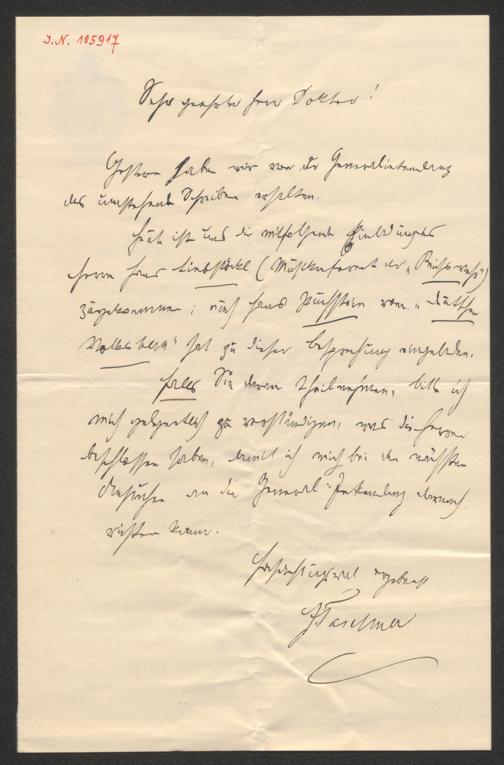 J.N. 105917
Sehr geehrter Herr Doktor!
Gestern haben wir von der Generalintendanz
das umstehende Schreiben erhalten.
Heute ist uns die mitfolgende Einladung
Herrn Hans Liebstöckl (Musikreferent der „Reichswehr")
zugekommen; auch Hans Puchstein vom „Deutschen
Volksblatt" hat zu dieser Besprechung eingeladen.
Falls Sie daran theilnehmen, bitte ich
mich gelegentlich zu verständigen, was die Herren
beschlossen haben, damit ich mich bei den nächsten
Ansuchen an die General-Intendanz darnach
richten kann.
Hochachtungsvoll ergebenst